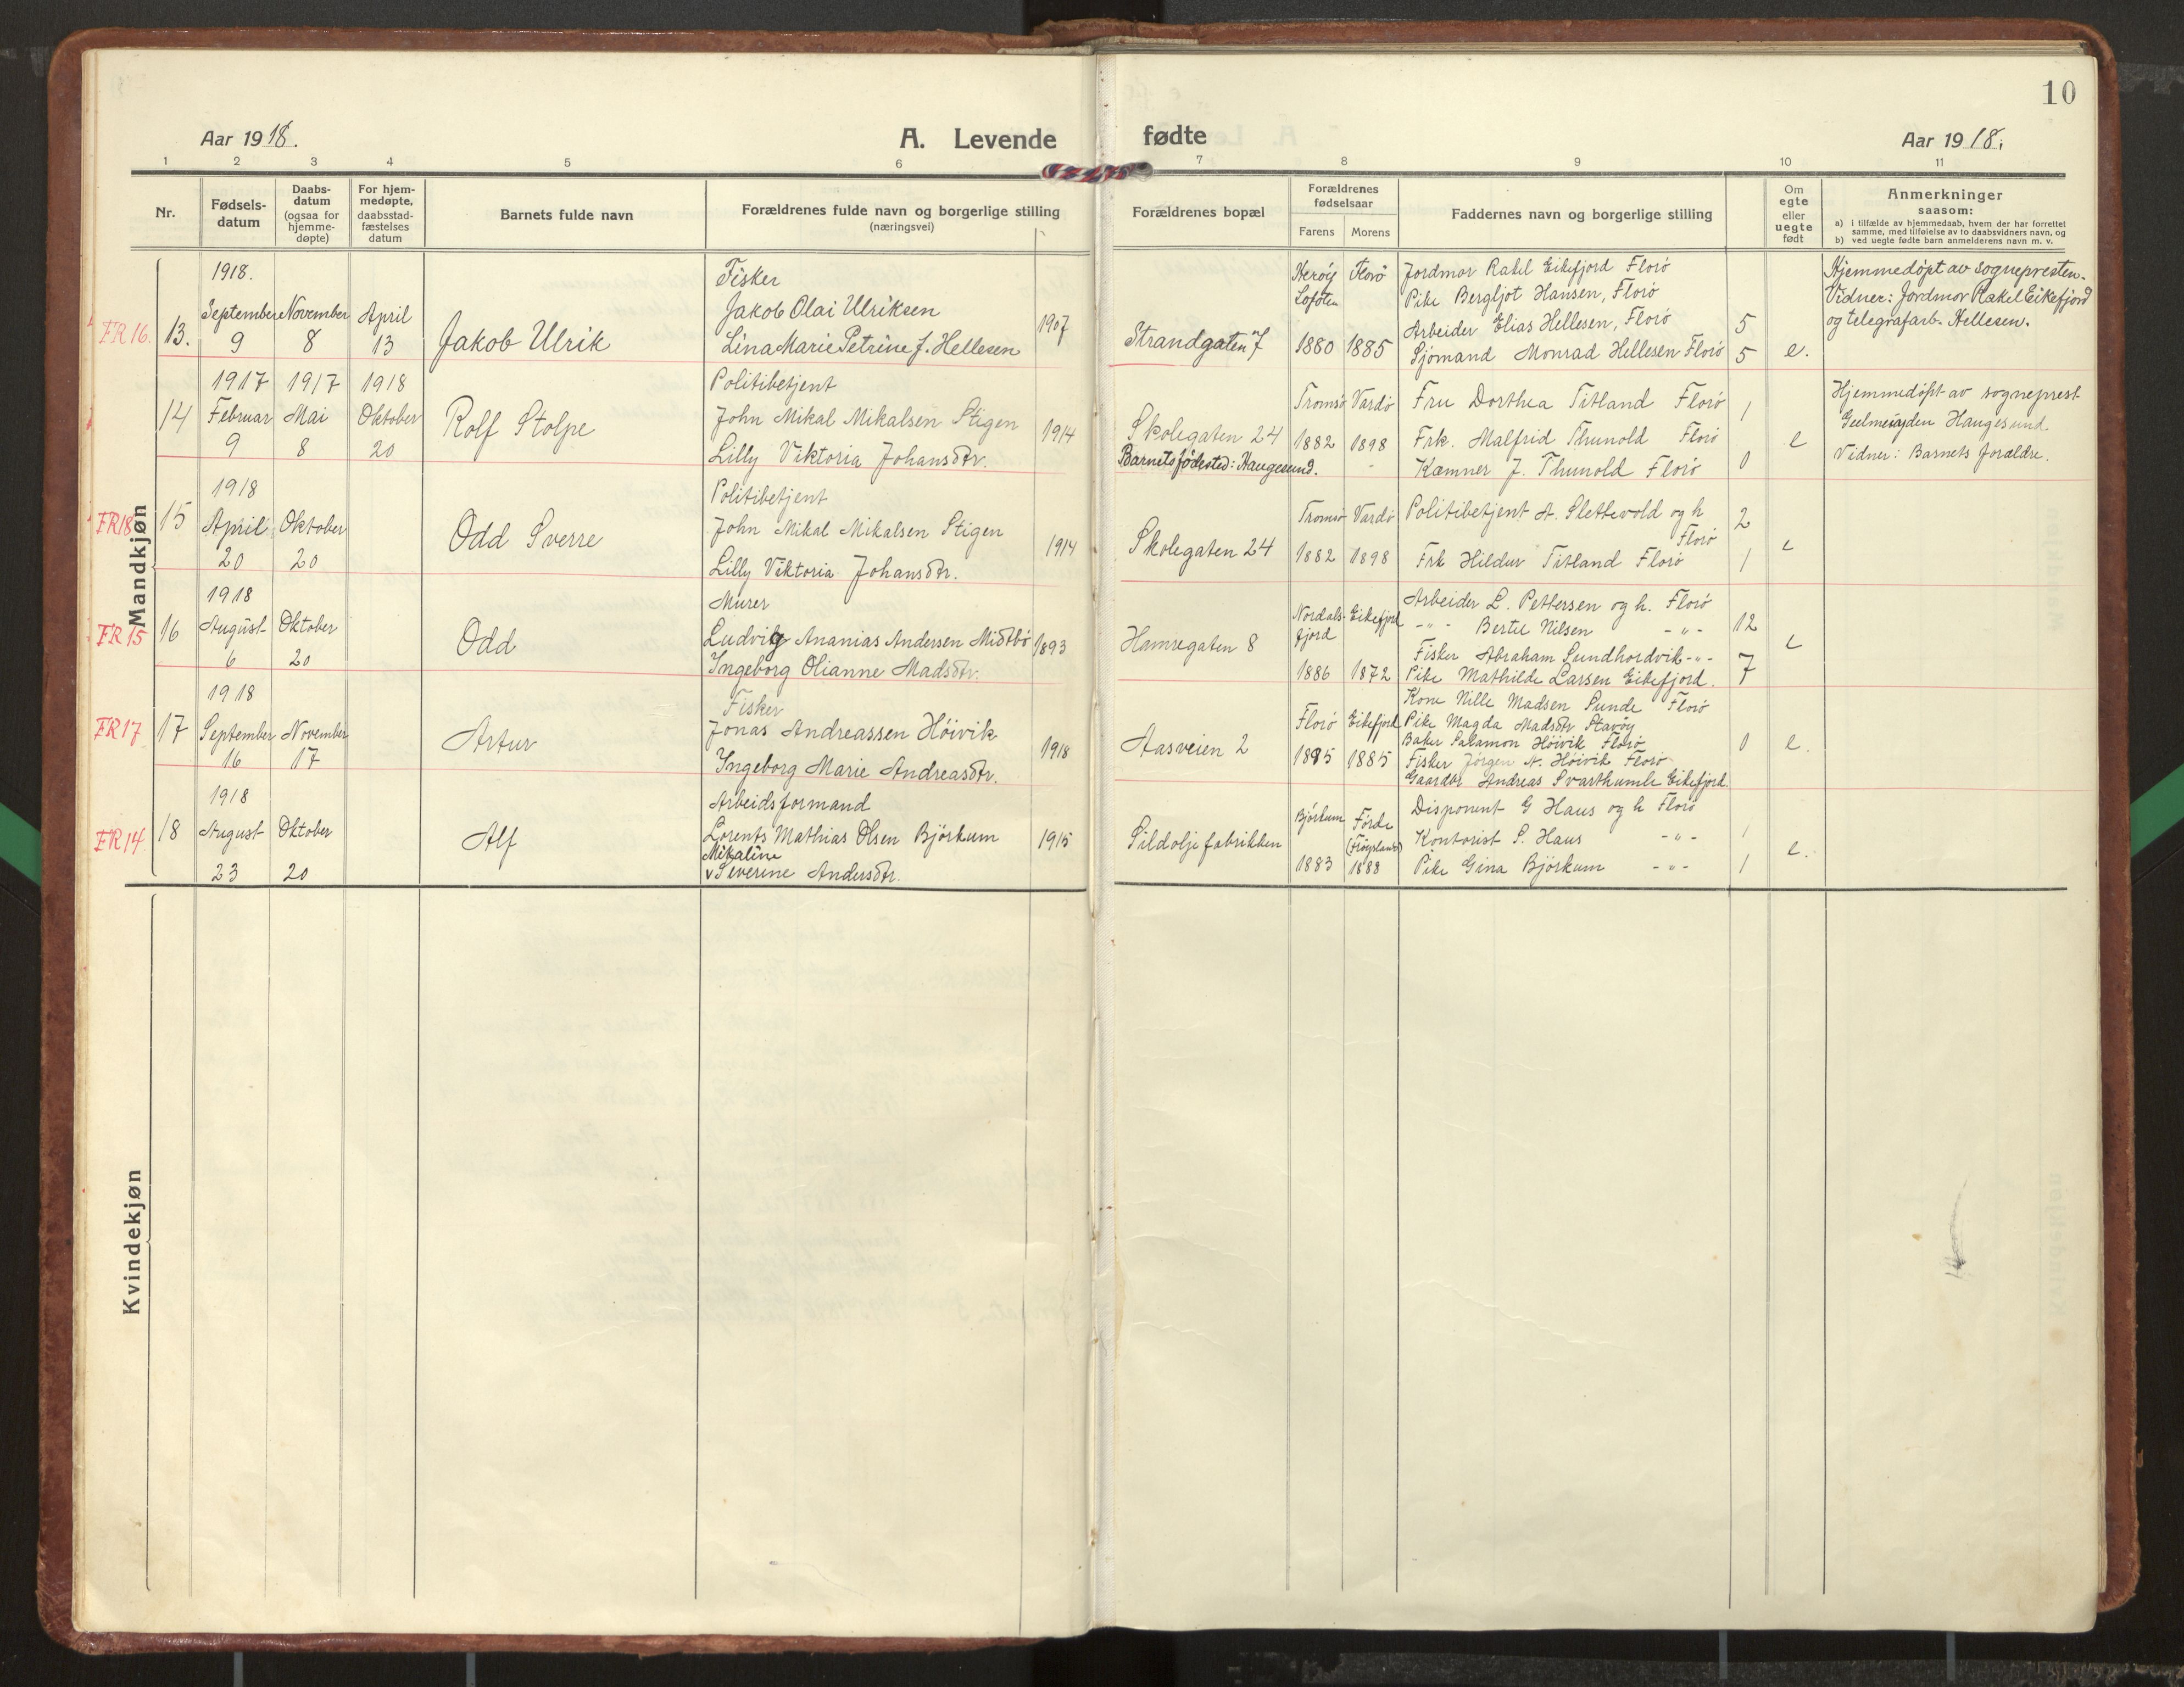 10
Aar 1918.
A. Levende
fødte
Aar 1918.
1 2 3 4 5 6 7 8 9 10 11
Nr.
Fødsels-
datum
Daabs-
datum
(ogsaa for
hjemme-
døpte)
For hjem-
medøpte,
daabsstad-
fæstelses
datum
Barnets fulde navn
Forældrenes fulde navn og borgerlige stilling
(næringsvei)
Forældrenes bopæl
Forældrenes
fødselsaar
Farens Morens
Faddernes navn og borgerlige stilling
Om
egte
eller
uegte
født
Anmerkninger
saasom:
a) i tilfælde av hjemmedaab, hvem der har forrettet
samme, med tilføielse av to daabsvidners navn, og
b) ved uegte fødte barn anmelderens navn m. v.
Mandkjøn
FR 16.
13.
1918.
September
9
November
8
April
13
Jakob Ulrik
Fisker
Jakob Olai Ulriksen
Lina Marie Petrine J. Hellesen
1907
Strandgaten 7
Herøy
Lofoten
1880
Florø
1885
Jordmor Rakel Eikefjord Florø
Pike Bergljot Hansen, Florø
Arbeider Elias Hellesen, Florø
Sjømand Monrad Hellesen Florø
5
5
e.
Hjemmedøpt av sognepresten.
Vidner: Jordmor Rakel Eikefjord
og telegrafarb. Hellesen.
14
1917
Februar
9
1917
Mai
8
1918
Oktober
20
Rolf Stolpe
Politibetjent
John Mikal Mikalsen Stigen
Lilly Viktoria Johansdtr.
1914
Skolegaten 24
Barnets fødested: Haugesund.
Tromsø
1882
Vardø
1898
Fru Dorthea Titland Florø
Frk. Malfrid Thunold Florø
Kæmner J. Thunold Florø
1
0
e
Hjemmedøpt av sogneprest
Haugesund.
Vidner: Barnets forældre.
FR 18
15
1918
April
20
Oktober
20
Odd Sverre
Politibetjent
John Mikal Mikalsen Stigen
Lilly Viktoria Johansdtr.
1914
Skolegaten 24
Tromsø
1882
Vardø
1898
Politibetjent A. Slettevold og h
Florø
Frk Hildur Titland Florø
2
1
e
FR 15
16
1918
August
6
Oktober
20
Odd
Murer
Ludvig Ananias Andersen Midtbø
Ingeborg Olianne Madsdtr.
1893
Hamregaten 8
Nordals-
fjord
1886
Eikefjord
1872
Arbeider L. Pettersen og h. Florø
-"- Bertel Nilsen -"-
Fisker Abraham Sundhordvik -"-
Pike Mathilde Larsen Eikefjord.
12
7
e
FR 17
17
1918
September
16
November
17
Artur
Fisker
Jonas Andreassen Höivik
Ingeborg Marie Andreasdtr.
1918
Aasveien 2
Florø
1895
Eikefjord
1885
Kone Nille Madsen Sunde Florø
Pike Magda Madsdtr Stavøy
Baker Salamon Höivik Florø
Fisker Jörgen A. Höivik Florø
Gaardbr Andreas Svarthumle Eikefjord.
0
e.
FR 14
18
1918
August
23
Oktober
20
Alf
Arbeidsformand
Lorents Mathias Olsen Björkum
Mikaline
v Severine Andersdtr.
1915
Sildoljefabrikken
Björkum
1883
Förde
1888
Disponent G Haus og h Florø
Kontorist S. Haus -"-
Pike Gina Björkum -"-
1
1
e.
Kvindekjøn